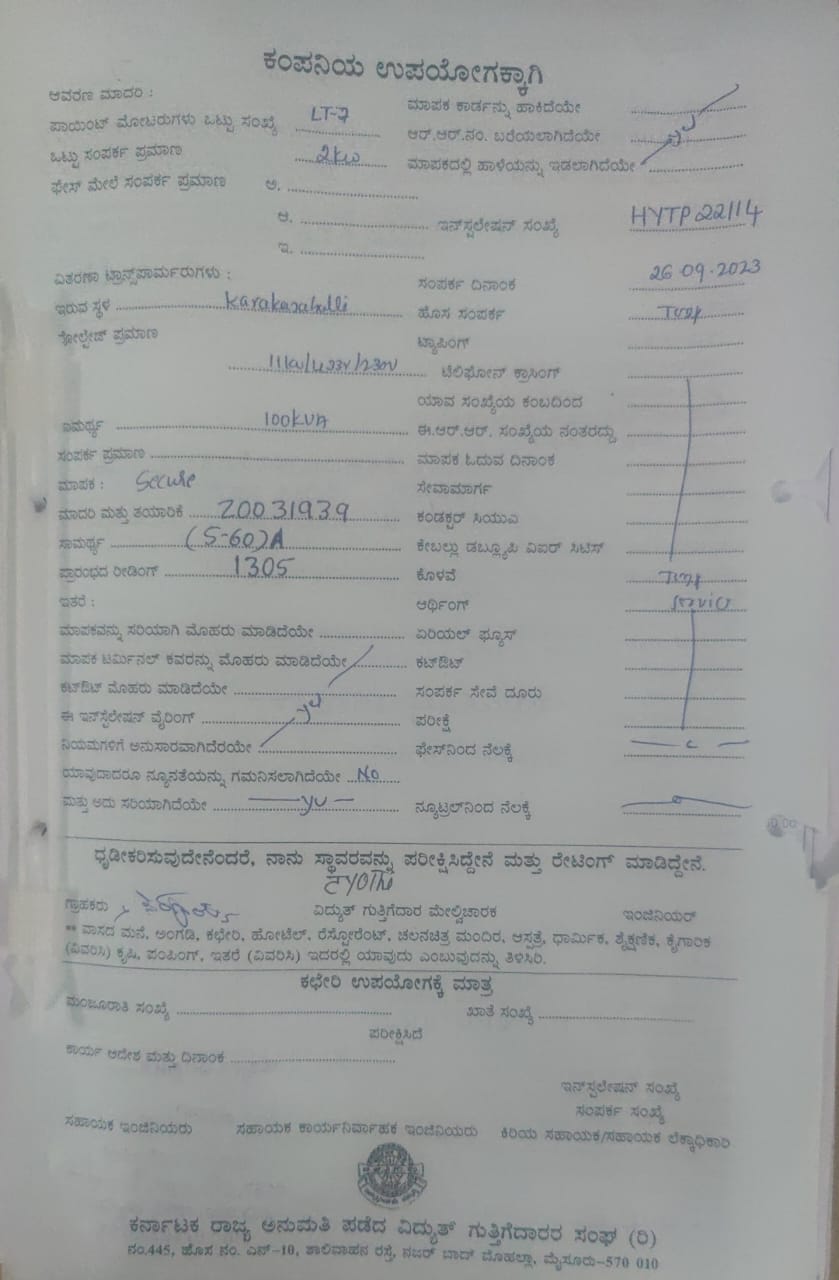 ಕಂಪನಿಯ ಉಪಯೋಗಕ್ಕಾಗಿ
ಆವರಣ ಮಾದರಿ :
ಮಾಪಕ ಕಾರ್ಡನ್ನು ಹಾಕಿದೆಯೇ
ಪಾಯಿಂಟ್ ಮೋಟರುಗಳು ಒಟ್ಟು ಸಂಖ್ಯೆ LT-7 ಆರ್.ಆರ್.ನಂ. ಬರೆಯಲಾಗಿದೆಯೇ
ಒಟ್ಟು ಸಂಪರ್ಕ ಪ್ರಮಾಣ 2kw ಮಾಪಕದಲ್ಲಿ ಹಾಳೆಯನ್ನು ಇಡಲಾಗಿದೆಯೇ
ಫೇಸ್ ಮೇಲೆ ಸಂಪರ್ಕ ಪ್ರಮಾಣ ಅ.
ಆ. ಇನ್‌ಸ್ಟಲೇಷನ್ ಸಂಖ್ಯೆ HYTP22114
ಇ.
ವಿತರಣಾ ಟ್ರಾನ್ಸ್‌ಪಾರ್ಮರುಗಳು : ಸಂಪರ್ಕ ದಿನಾಂಕ 26 09.2023
ಇರುವ ಸ್ಥಳ ಹೊಸ ಸಂಪರ್ಕ Temp
ವೋಲ್ಟೇಜ್ ಪ್ರಮಾಣ ಟ್ಯಾಪಿಂಗ್
ಟೆಲಿಫೋನ್ ಕ್ರಾಸಿಂಗ್
ಯಾವ ಸಂಖ್ಯೆಯ ಕಂಬದಿಂದ
ಸಾಮರ್ಥ್ಯ 100KVA ಈ.ಆರ್.ಆರ್. ಸಂಖ್ಯೆಯ ನಂತರದ್ದು
ಸಂಪರ್ಕ ಪ್ರಮಾಣ ಮಾಪಕ ಓದುವ ದಿನಾಂಕ
ಮಾಪಕ : Secure ಸೇವಾಮಾರ್ಗ
ಮಾದರಿ ಮತ್ತು ತಯಾರಿಕೆ 20031939 ಕಂಡಕ್ಟರ್ ಸಿಯುವಿ
ಸಾಮರ್ಥ್ಯ (5-60)A ಕೇಬಲ್ಲು ಡಬ್ಲ್ಯೂಪಿ ವಿಐರ್ ಸಿಟಿಸ್
ಪ್ರಾರಂಭದ ರೀಡಿಂಗ್ 1305 ಕೊಳವೆ Temp
ಇತರೆ : ಆರ್ಥಿಂಗ್ service
ಮಾಪಕವನ್ನು ಸರಿಯಾಗಿ ಮೊಹರು ಮಾಡಿದೆಯೇ ಏರಿಯಲ್ ಫ್ಯೂಸ್
ಮಾಪಕ ಟರ್ಮಿನಲ್ ಕವರನ್ನು ಮೊಹರು ಮಾಡಿದೆಯೇ ಕಟ್‌ಔಟ್
ಕಟ್‌ಔಟ್ ಮೊಹರು ಮಾಡಿದೆಯೇ ಸಂಪರ್ಕ ಸೇವೆ ದೂರು
ಈ ಇನ್‌ಸ್ಟಲೇಷನ್ ವೈರಿಂಗ್ ಪರೀಕ್ಷೆ
ನಿಯಮಗಳಿಗೆ ಅನುಸಾರವಾಗಿದೆರಯೇ ಫೇಸ್‌ನಿಂದ ನೆಲಕ್ಕೆ
ಯಾವುದಾದರೂ ನ್ಯೂನತೆಯನ್ನು ಗಮನಿಸಲಾಗಿದೆಯೇ No
ಮತ್ತು ಅದು ಸರಿಯಾಗಿದೆಯೇ ನ್ಯೂಟ್ರಲ್‌ನಿಂದ ನೆಲಕ್ಕೆ
ಧೃಡೀಕರಿಸುವುದೇನೆಂದರೆ, ನಾನು ಸ್ಥಾವರವನ್ನು ಪರೀಕ್ಷಿಸಿದ್ದೇನೆ ಮತ್ತು ರೇಟಿಂಗ್ ಮಾಡಿದ್ದೇನೆ.
ಗ್ರಾಹಕರು ವಿದ್ಯುತ್ ಗುತ್ತಿಗೆದಾರ ಮೇಲ್ವಿಚಾರಕ ಇಂಜಿನಿಯರ್
** ವಾಸದ ಮನೆ, ಅಂಗಡಿ, ಕಛೇರಿ, ಹೋಟೆಲ್, ರೆಸ್ಟೋರೆಂಟ್, ಚಲನಚಿತ್ರ ಮಂದಿರ, ಆಸ್ಪತ್ರೆ, ಧಾರ್ಮಿಕ, ಶೈಕ್ಷಣಿಕ, ಕೈಗಾರಿಕ
(ವಿವರಿಸಿ) ಕೃಷಿ, ಪಂಪಿಂಗ್, ಇತರೆ (ವಿವರಿಸಿ) ಇದರಲ್ಲಿ ಯಾವುದು ಎಂಬುವುದನ್ನು ತಿಳಿಸಿರಿ.
ಕಛೇರಿ ಉಪಯೋಗಕ್ಕೆ ಮಾತ್ರ
ಮಂಜೂರಾತಿ ಸಂಖ್ಯೆ ಖಾತೆ ಸಂಖ್ಯೆ
ಪರೀಕ್ಷಿಸಿದೆ
ಕಾರ್ಯ ಆದೇಶ ಮತ್ತು ದಿನಾಂಕ
ಇನ್‌ಸ್ಟಲೇಷನ್ ಸಂಖ್ಯೆ
ಸಂಪರ್ಕ ಸಂಖ್ಯೆ
ಸಹಾಯಕ ಇಂಜಿನಿಯರು ಸಹಾಯಕ ಕಾರ್ಯನಿರ್ವಾಹಕ ಇಂಜಿನಿಯರು ಕಿರಿಯ ಸಹಾಯಕ/ಸಹಾಯಕ ಲೆಕ್ಕಾಧಿಕಾರಿ
ಕರ್ನಾಟಕ ರಾಜ್ಯ ಅನುಮತಿ ಪಡೆದ ವಿದ್ಯುತ್ ಗುತ್ತಿಗೆದಾರರ ಸಂಘ (ರಿ)
ನಂ.445, ಹೊಸ ನಂ. ಎನ್-10, ಶಾಲಿವಾಹನ ರಸ್ತೆ, ನಜರ್ ಬಾದ್ ಮೊಹಲ್ಲಾ, ಮೈಸೂರು-570 010